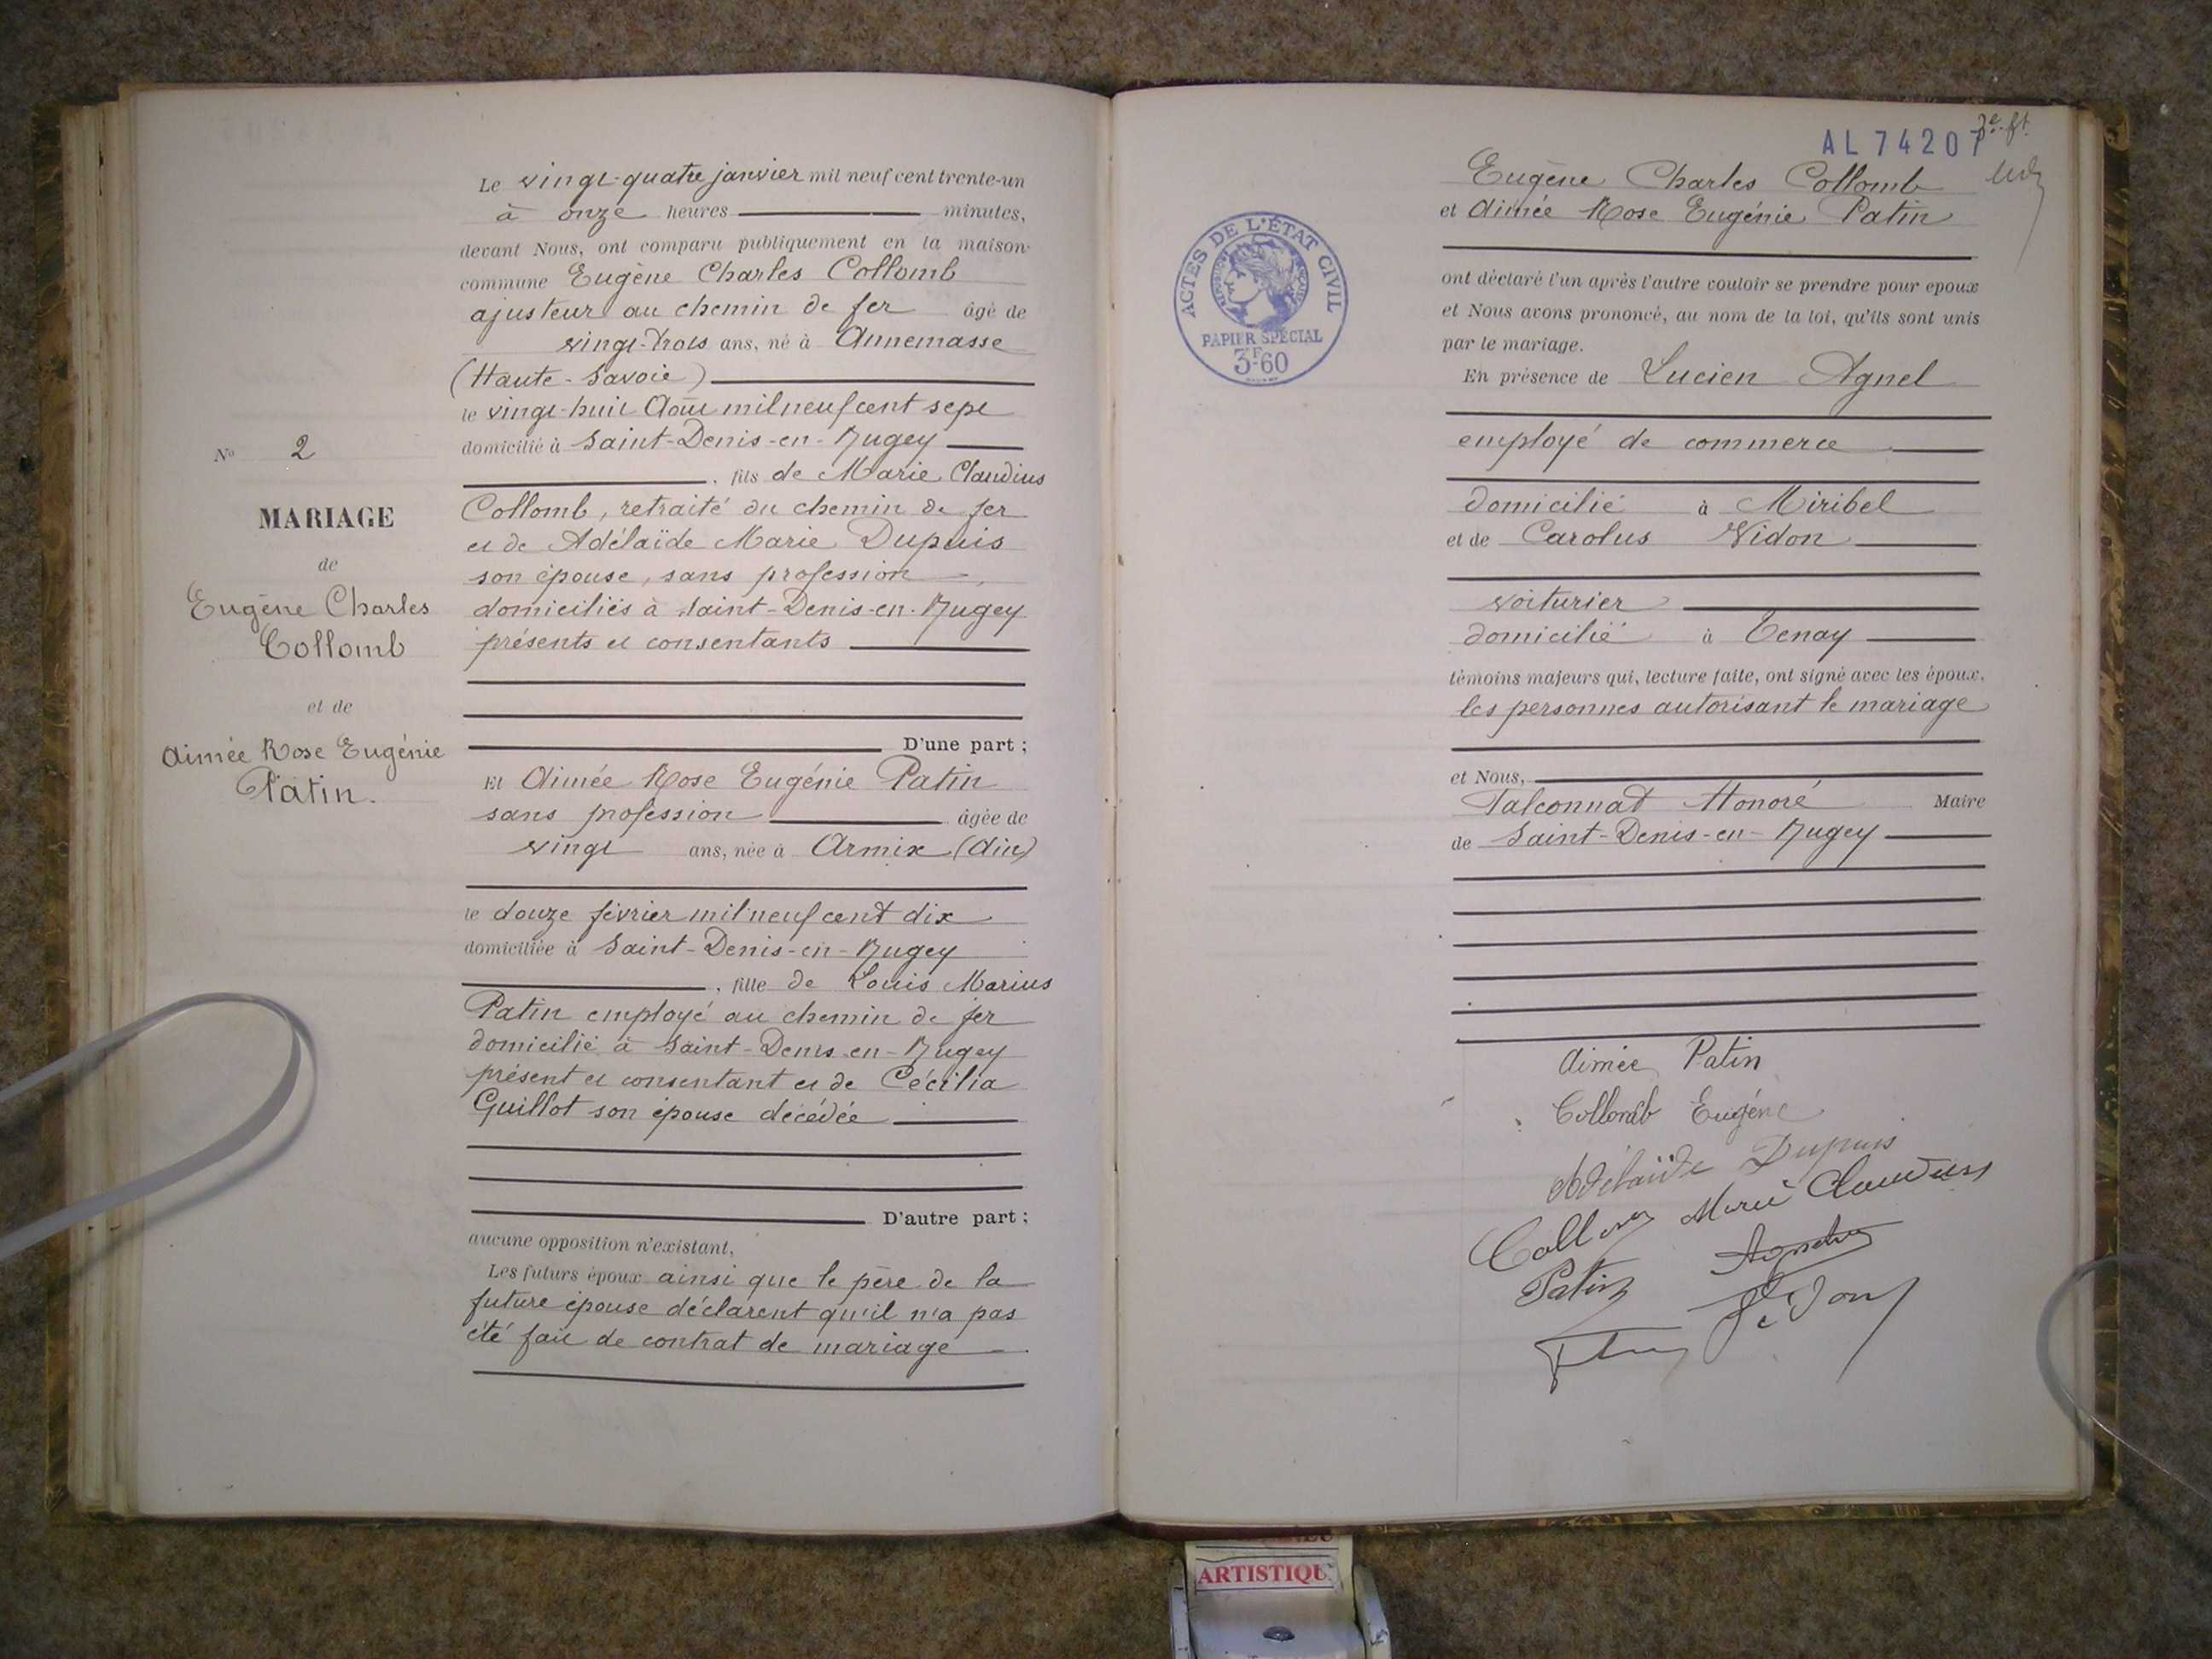 Nº 2
MARIAGE
de
Eugène Charles
Collomb
et de
Aimée Rose Eugénie
Patin.
Le vingt-quatre janvier mil neuf cent trente-un
à onze heures minutes,
devant Nous, ont comparu publiquement en la maison
commune Eugène Charles Collomb
ajusteur au chemin de fer âgé de
vingt-trois ans, né à Annemasse
(Haute-Savoie)
le vingt-huit Août mil neuf cent sept
domicilié à Saint-Denis-en-Bugey
, fils de Marie Claudius
Collomb, retraité du chemin de fer
et de Adélaïde Marie Dupuis
son épouse, sans profession
domiciliés à Saint-Denis-en-Bugey
présents et consentants
D'une part ;
Et Aimée Rose Eugénie Patin
sans profession âgée de
vingt ans, née à Armix (Ain)
le douze février mil neuf cent dix
domiciliée à Saint-Denis-en-Bugey
, fille de Louis Marius
Patin employé au chemin de fer
domicilié à Saint-Denis-en-Bugey
présent et consentant et de Cécilia
Guillot son épouse décédée
D'autre part ;
aucune opposition n'existant,
Les futurs époux ainsi que le père de la
future épouse déclarent qu'il n'a pas
été fait de contrat de mariage
AL 74207
2e ft.
ACTES DE L'ÉTAT CIVIL
RÉPUBLIQUE FRANÇAISE
PAPIER SPÉCIAL
3F60
Eugène Charles Collomb
et Aimée Rose Eugénie Patin
ont déclaré l'un après l'autre vouloir se prendre pour époux
et Nous avons prononcé, au nom de la loi, qu'ils sont unis
par le mariage.
En présence de Lucien Agnel
employé de commerce
domicilié à Miribel
et de Carolus Vidon
voiturier
domicilié à Tenay
témoins majeurs qui, lecture faite, ont signé avec les époux,
les personnes autorisant le mariage
et Nous,
Falconnat Honoré Maire
de Saint-Denis-en-Bugey
Aimée Patin
Collomb Eugène
Adélaïde Dupuis
Collomb Marie Claudius
Patin
ARTISTIQU